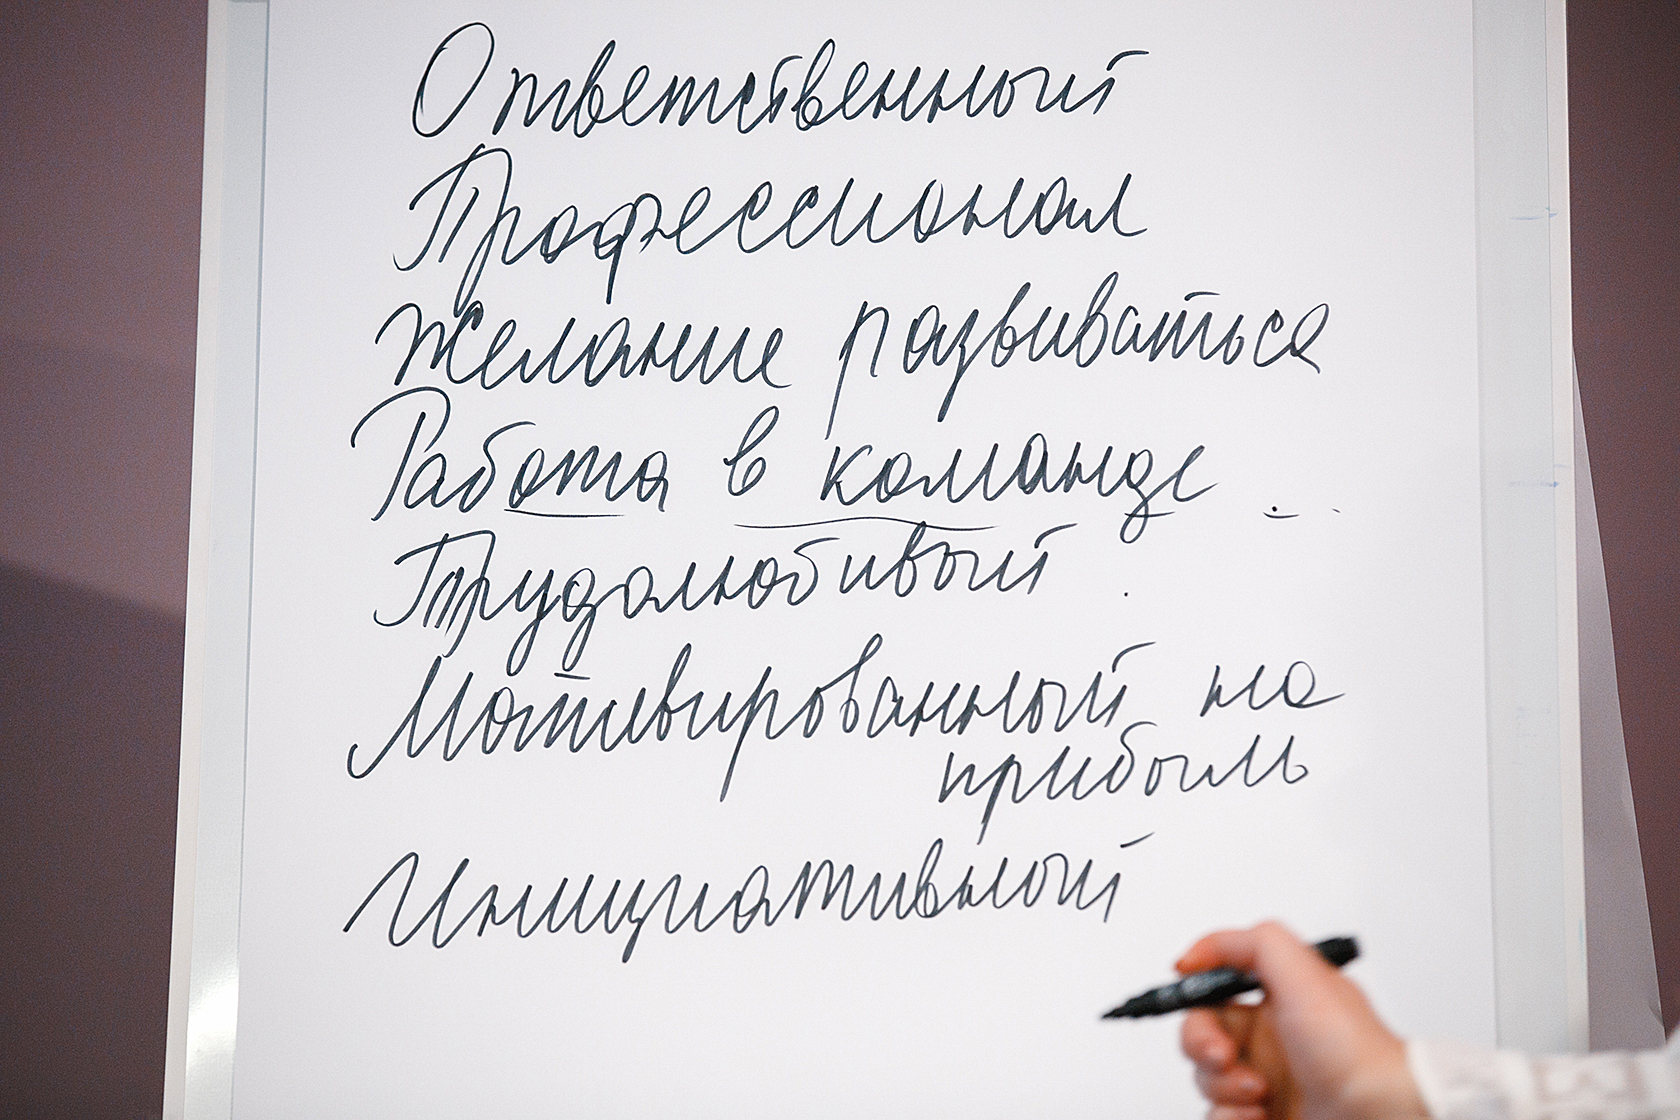 Ответственный
Профессионал
Желание развиваться
Работа в команде
Трудолюбивый
Мотивированный на
прибыль
Инициативный